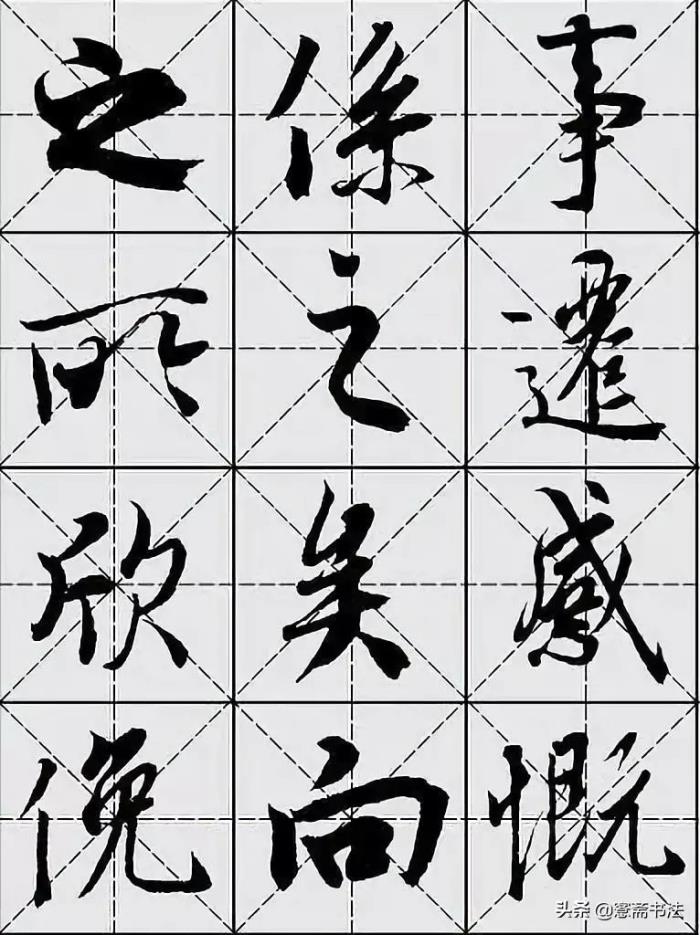 事遷感慨
係之矣向
之所欣俛
头条@憲斋书法